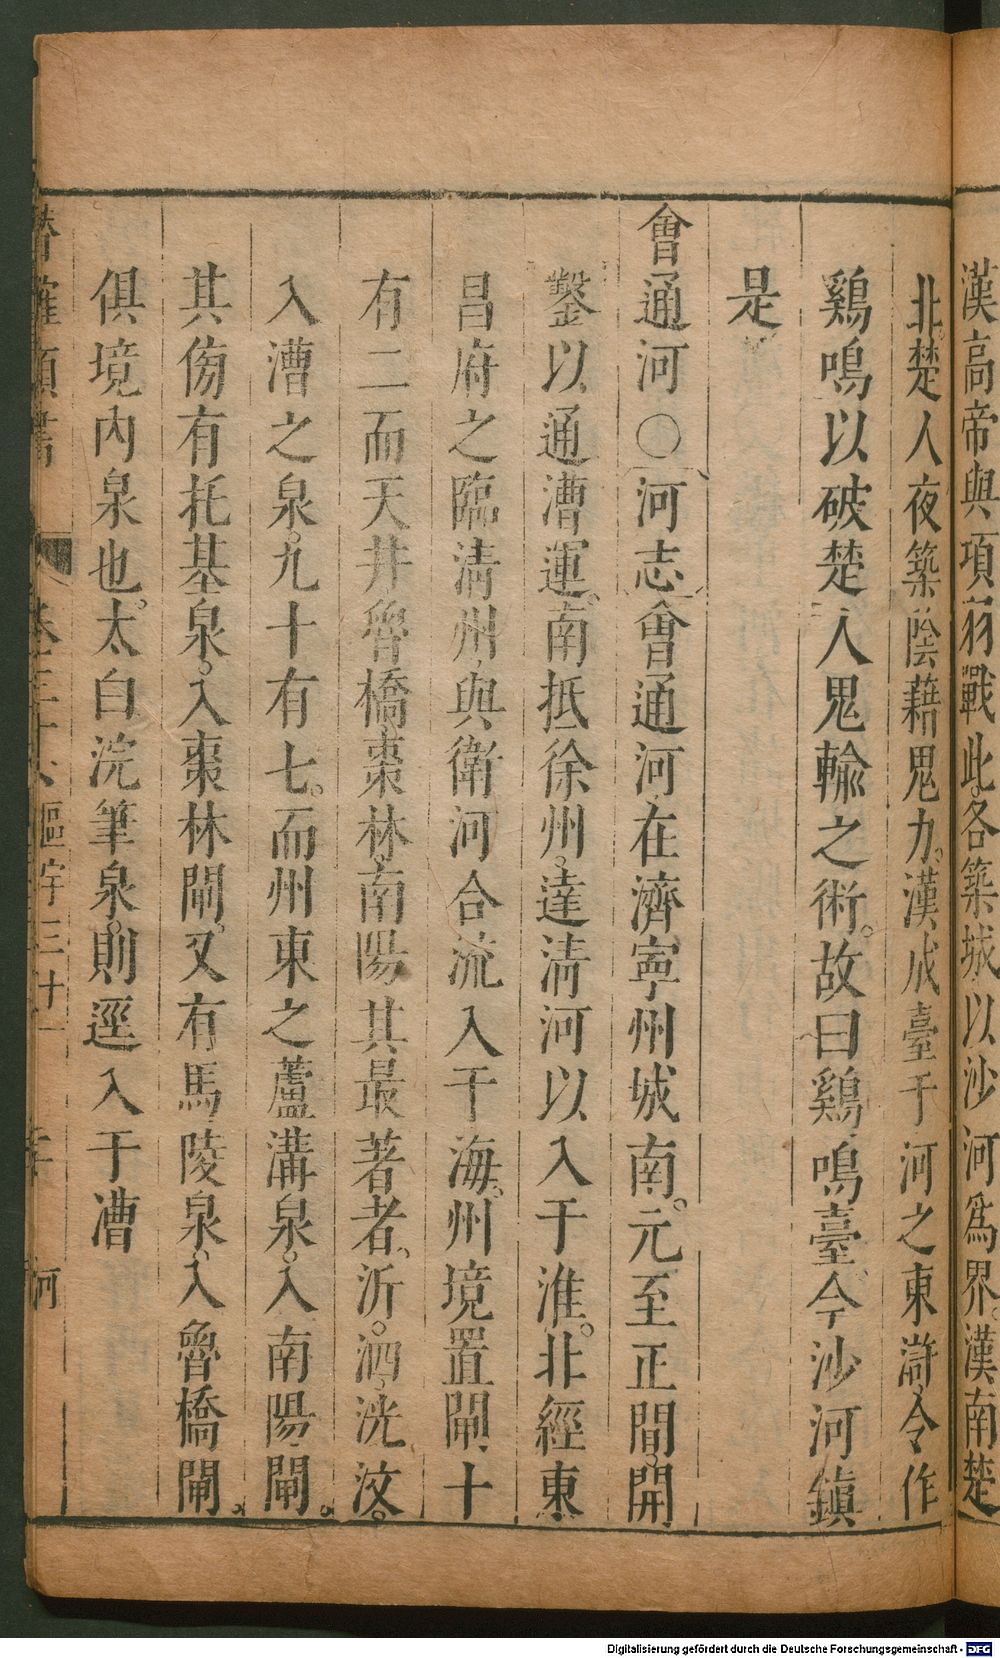 漢高帝與項羽戰此各築城以沙河爲界漢南楚
北楚人夜築陰藉鬼力漢戍臺于河之東滸令作
鷄鳴以破楚人鬼輸之術故曰鷄鳴臺今沙河鎮
是
會通河〇河志會通河在濟寧州城南元至正間開
鑿以通漕運南抵徐州達淸河以入于淮北經東
昌府之臨淸州與衛河合流入于海州境置閘十
有二而天井魯橋棗林南陽其最著者沂泗洸汶
入漕之泉九十有七而州東之蘆溝泉入南陽閘
其傍有托基泉入棗林閘又有馬陵泉入魯橋閘
俱境內泉也太白浣筆泉則逕入于漕
潛確類書 卷三十 區宇三十一 河
Digitalisierung gefördert durch die Deutsche Forschungsgemeinschaft - DFG